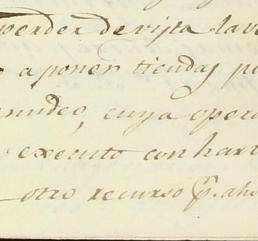 perder de vista la ve
a poner tiendas pa
menudeo, cuya opera
executo con hart
otro recurso p. aho